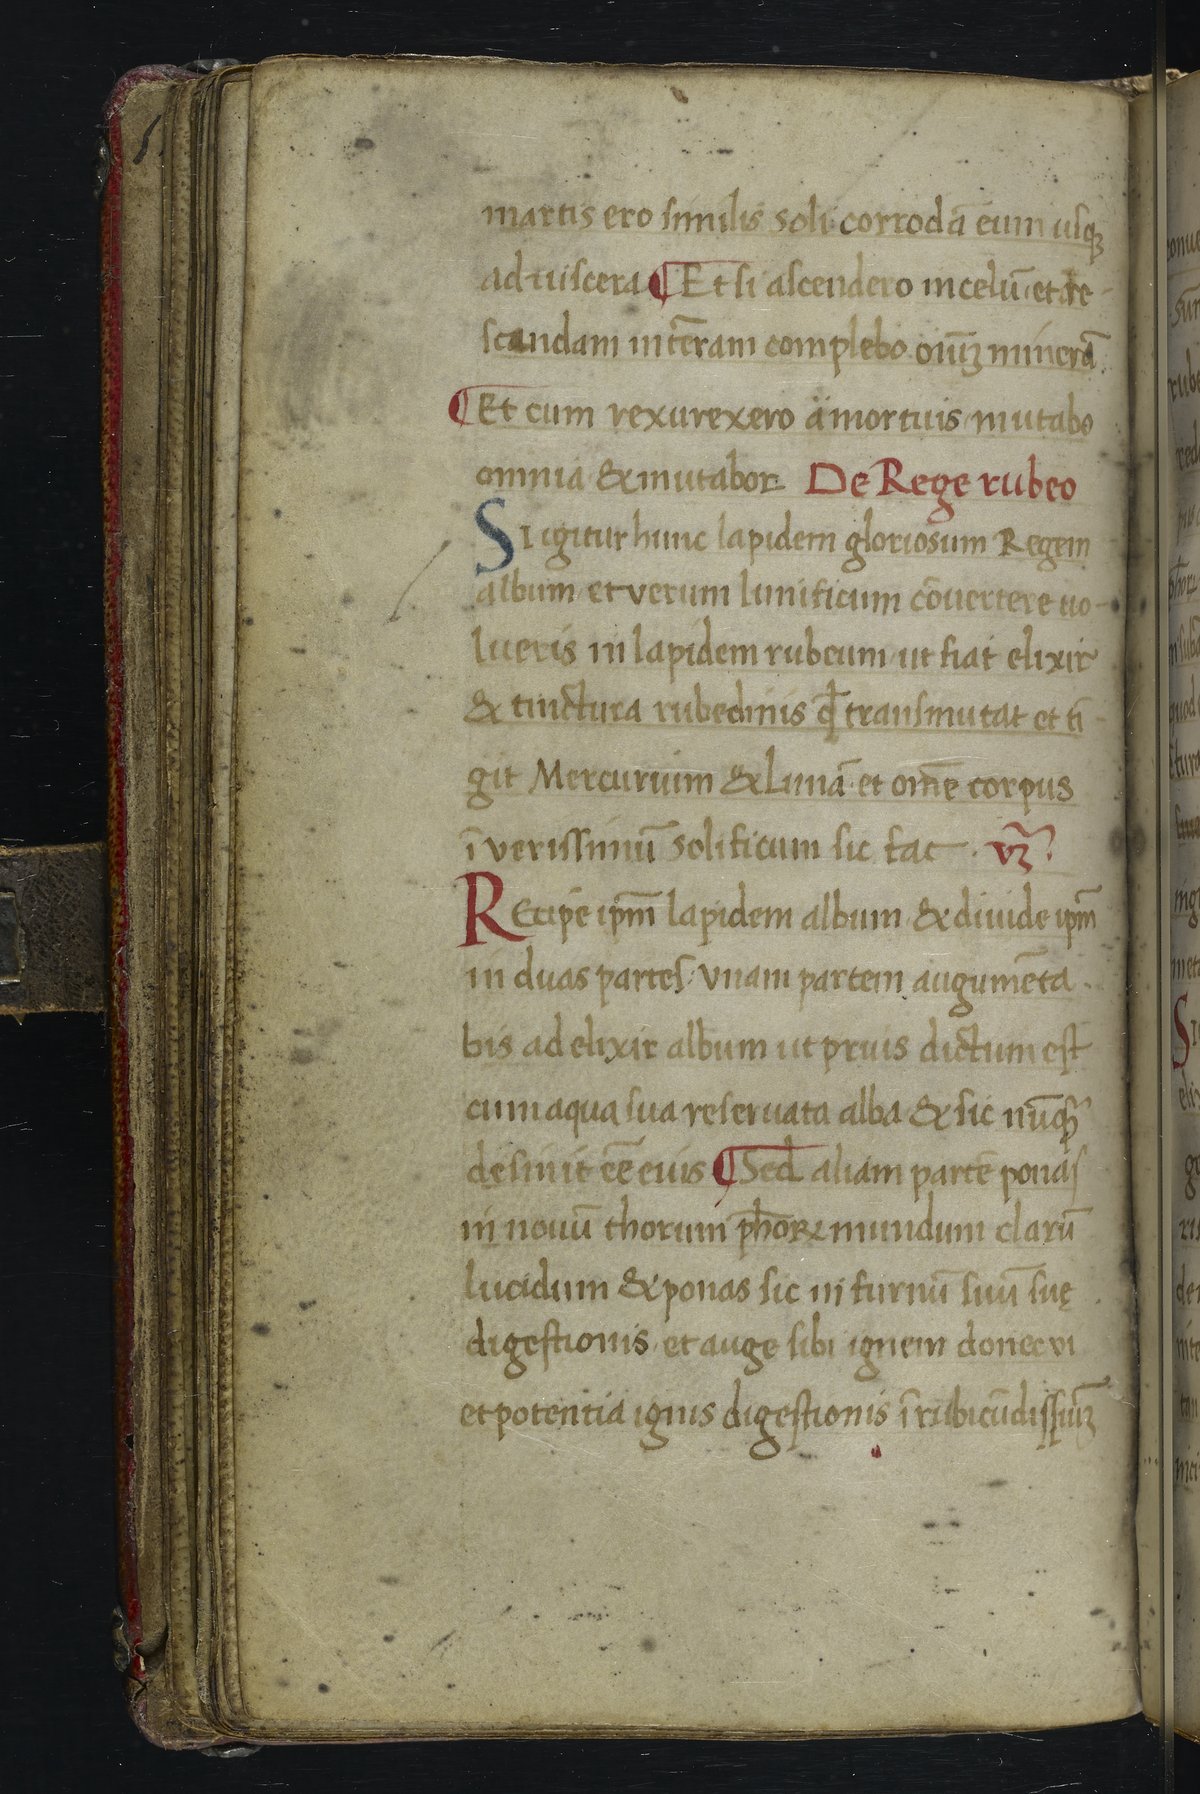 martis ero similis soli corrodā eum usqꝫ
ad uiscera ¶ Et si ascendero in celū et re-
scandam in terram complebo oīuꝫ minerā.
¶ Et cum rexurexero ä mortuis mutabo
omnia & mutabor De Rege rubeo
SI igitur hunc lapidem gloriosum Regem
album et verum lunificum cōuertere uo-
lueris in lapidem rubeum ut fiat elixir
& tinctura rubedinis qđ transmutat et tī-
git Mercurium & Lunā et om̄e corpus
ī verissimū solificum sic fac. vꝫ.
REcipe ip̄m lapidem album & diuide ip̄m
in duas partes. Vnam partem augumēta-
bis ad elixir album ut prius dictum est
cum aqua sua reseruata alba & sic nūqꝫ
desinit eē euis ¶ Sed aliam partē ponas
in nouū thorum ph̄oꝝ mundum clarū
lucidum & ponas sic in furnū suū suę
digestionis et auge sibi ignem donec vi
et potentia ignis digestionis ī rubicūdissīuꝫ